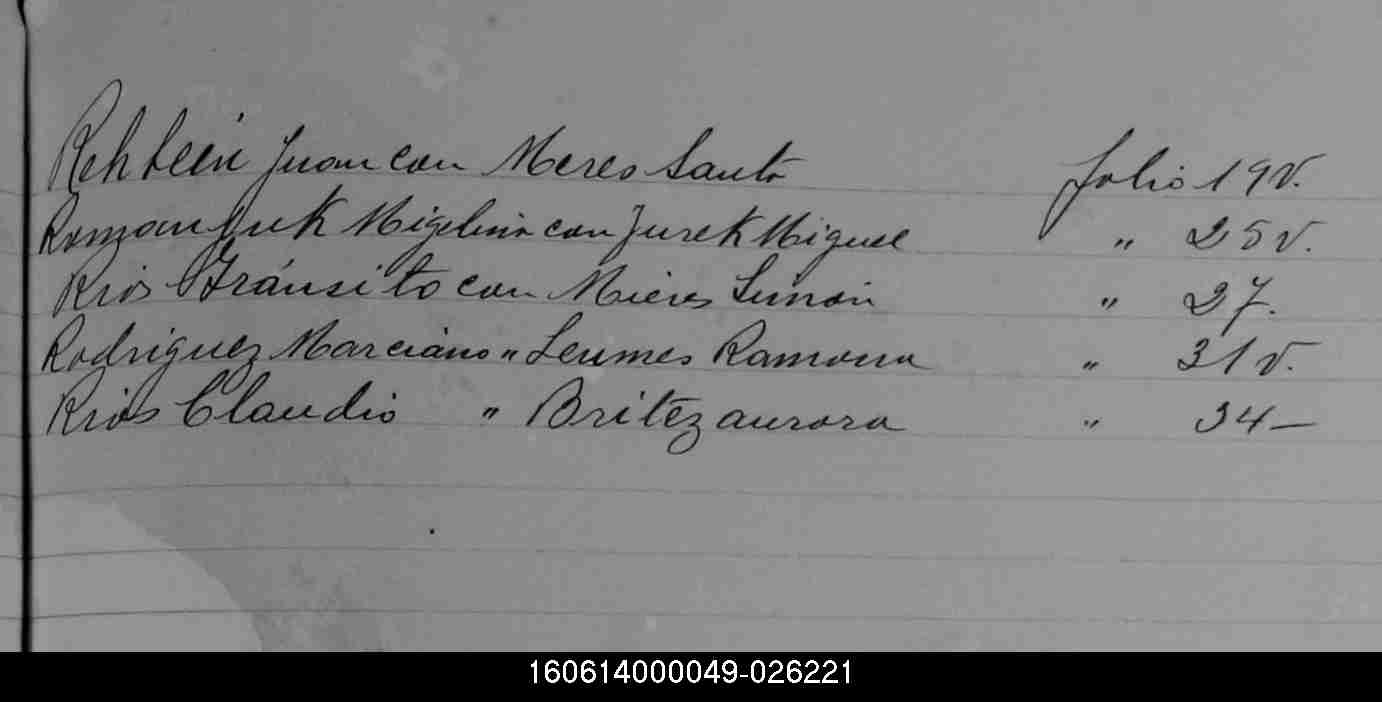 Rehbein Juan con Meres Santo folio 19 v.
Romaniuk Migelina con Jurek Miguel " 25 v.
Rios Tránsito con Mieres Simón " 27.
Rodriguez Marciano " Lesmes Ramona " 31 v.
Rios Claudio " Britez aurora " 34 —
160614000049-026221